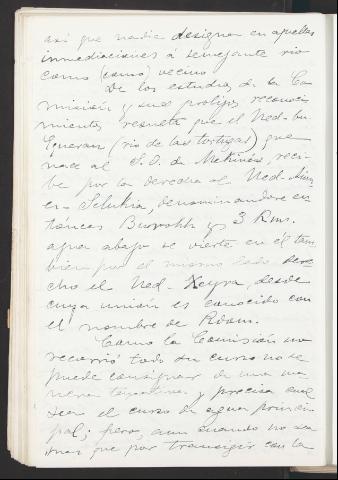 así que nadie designa en aquellas
inmediaciones á semejante rio
como (como) vecino
De los estudios de la Co
misión y sus prolijos reconoci
mientos resulta que el Ued-bu
(rio de las tortugas) que
nace al S.O. de Mekinés, reci
be por la derecha al Ued-
Seluhia, denominandose en
tónces y 3 Kms.
agua abajo se vierte en él tam
bien por el mismo lado dere
cho el Ued-Xeyra, desde
cuya unión es conocido con
el nombre de Rdom.
Como la Comisión no
recorrió todo su curso no se
puede consignar de una ma
nera terminante y precisa cual
sea el curso de agua princi
pal; pero, aun cuando no sea
mas que por transigir con la